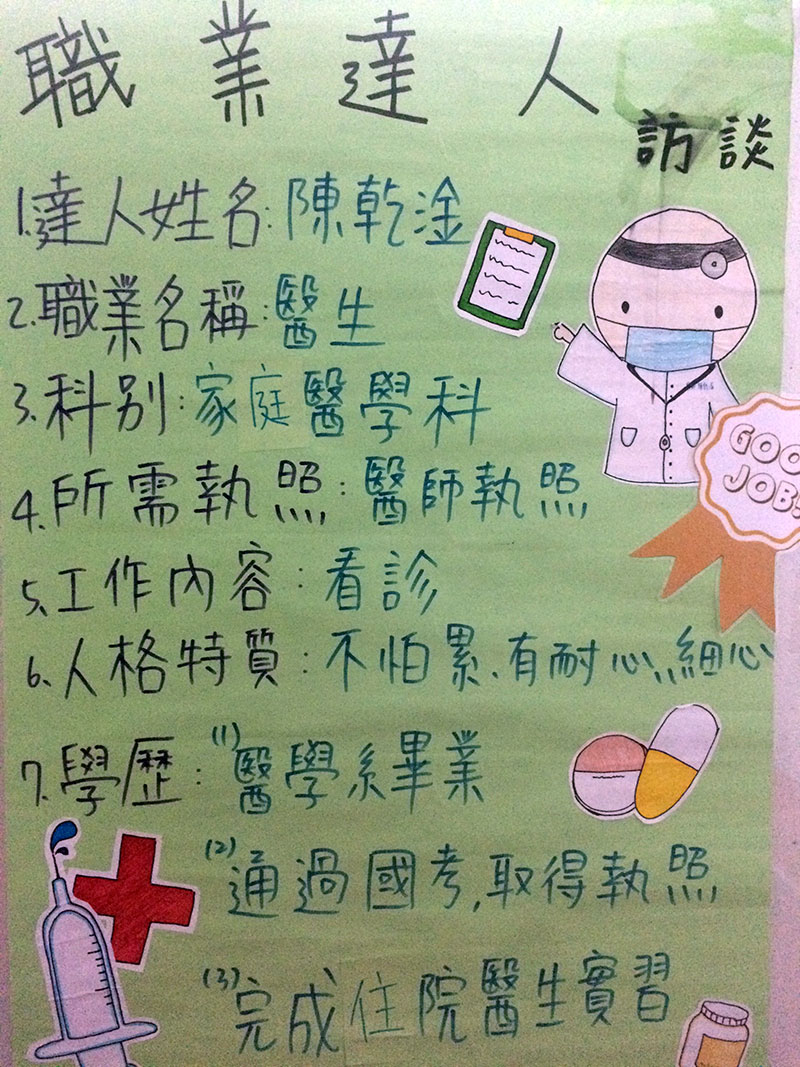 職業達人
訪談
1.達人姓名:陳乾淦
2.職業名稱:醫生
3.科別:家庭醫學科
4.所需執照:醫師執照
5.工作內容:看診
6.人格特質:不怕累、有耐心、細心
7.學歷:(1)醫學系畢業
(2)通過國考,取得執照
(3)完成住院醫生實習
GOOD
JOB!